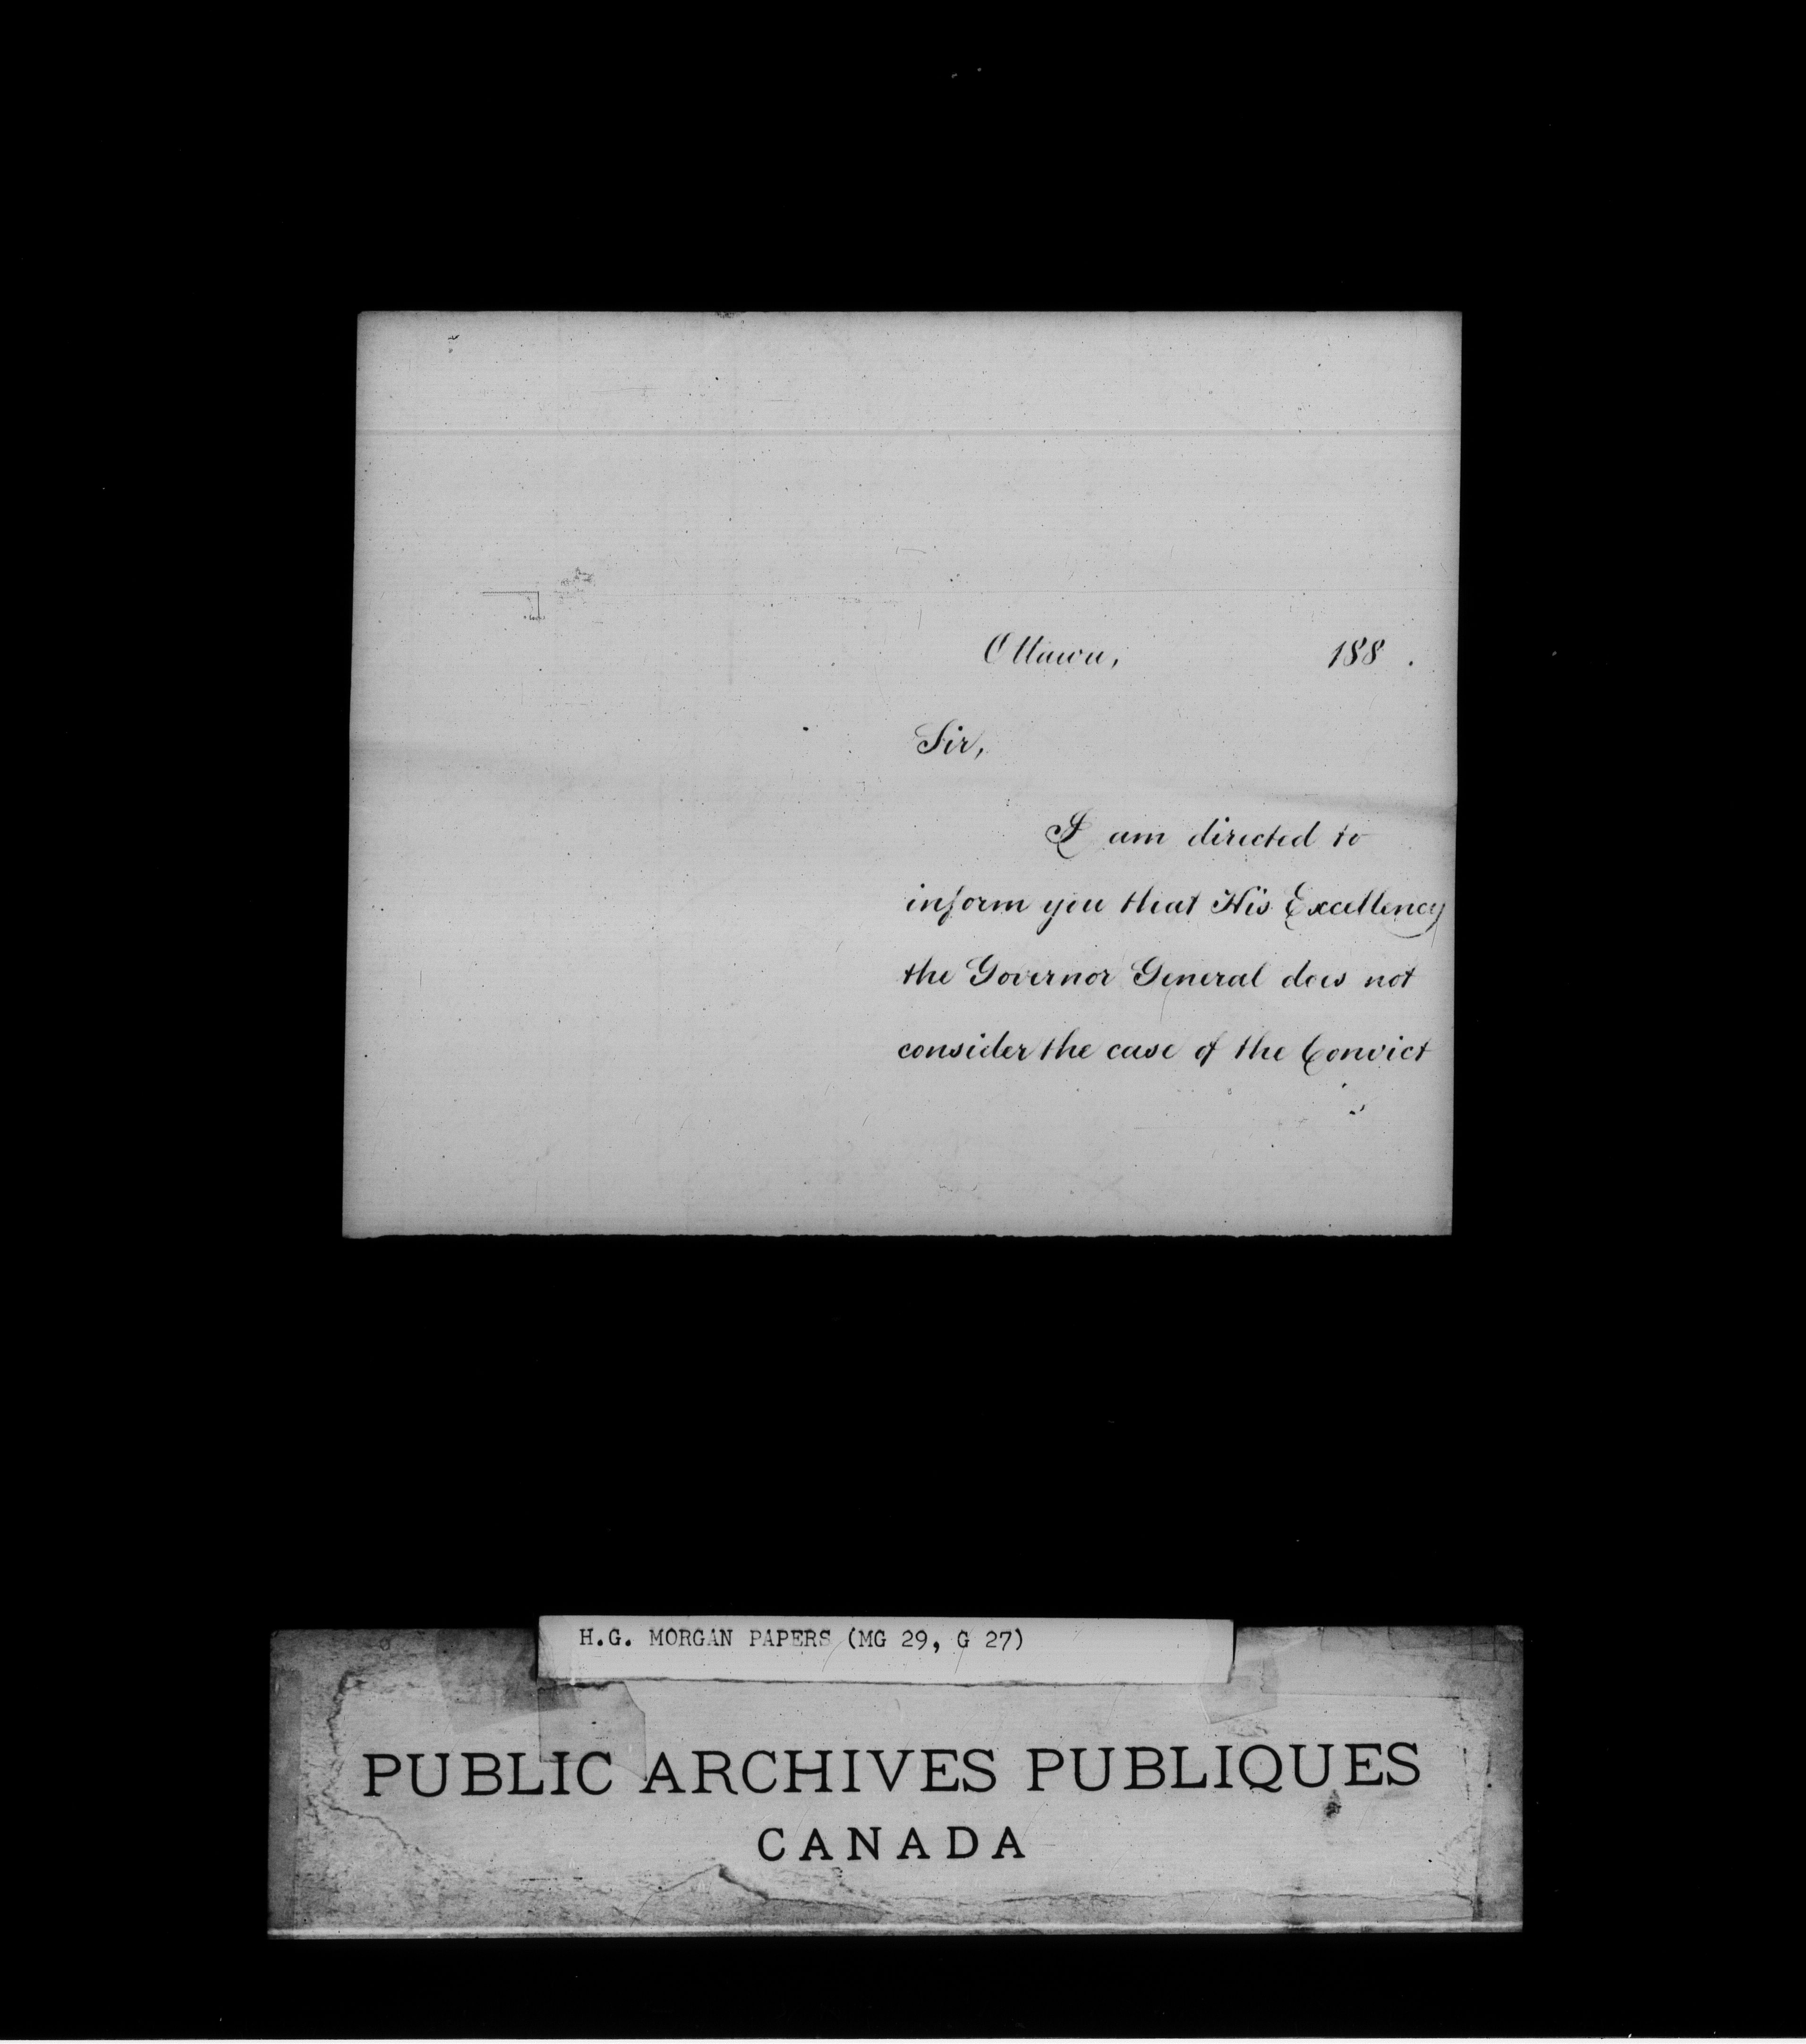 Ottawa, 188 .
Sir,
I am directed to
inform you that His Excellency
the Governor General does not
consider the case of the Convict
H.G. MORGAN PAPERS (MG 29, G 27)
PUBLIC ARCHIVES PUBLIQUES
CANADA